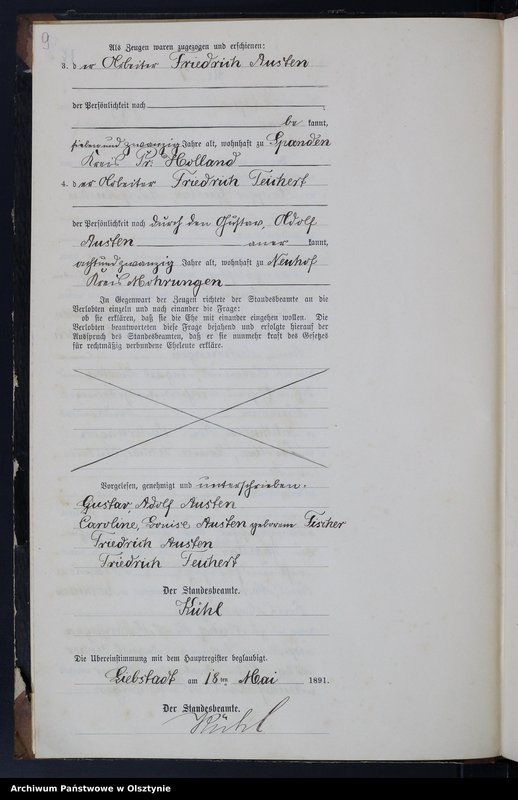 9
Als Zeugen waren zugezogen und erschienen:
3. der Arbeiter Friedrich Austen
der Persönlichkeit nach
be kannt,
siebenundzwanzig Jahre alt, wohnhaft zu Spanden
Kreis Pr. Holland
4. der Arbeiter Friedrich Teichert
der Persönlichkeit nach durch den Gustav, Adolf
Austen aner kannt,
achtundzwanzig Jahre alt, wohnhaft zu Neuhof
Kreis Mohrungen
In Gegenwart der Zeugen richtete der Standesbeamte an die
Verlobten einzeln und nach einander die Frage:
ob sie erklären, daß sie die Ehe mit einander eingehen wollen. Die
Verlobten beantworteten diese Frage bejahend und erfolgte hierauf der
Ausspruch des Standesbeamten, daß er sie nunmehr kraft des Gesetzes
für rechtmäßig verbundene Eheleute erkläre.
Vorgelesen, genehmigt und unterschrieben.
Gustav, Adolf Austen
Caroline, Louise Austen geborene Fischer
Friedrich Austen
Friedrich Teichert
Der Standesbeamte.
Kühl
Die Übereinstimmung mit dem Hauptregister beglaubigt.
Liebstadt am 18ten Mai 1891.
Der Standesbeamte.
Kühl
Archiwum Państwowe w Olsztynie